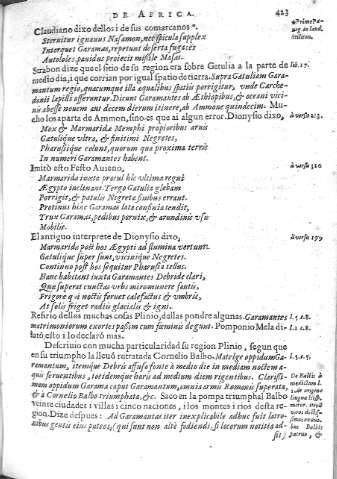 DE AFRICA. 423
Claudiano dixo dellos i de sus comarcanos
Sternitur ignavus Nasamon, nec spicula supplex
Interquet Garamas, repetunt deserta fugaces
Autololes, pavidus proiecit missile Mazax.
Strabon dize que el sitio de su region era sobre Getulia a la parte de
medio dia, i que corrian por igual spatio de tierra. Supra Getuliam Gara-
mantum regio, quacumque illa aequalibus spatiis porrigitur, unde Carche-
donii lapilli afferuntur. Dicunt Garamantes ab Aethiopibus, & oceani vici-
nis abesse novem aut decem dierum itinere, ab Ammone quindecim. Mu-
cho los aparta de Ammon, sino es que ai algun error. Dionysio dixo,
Mox & Marmarida Memphi propioribus arvis
Getulique ultra, & finitimi Negretes,
Pharusiique colunt, quorum que proxima terris
In numeri Garamantes habent.
Imitó esto Festo Avieno,
Marmaridae iuxta procul hic ultima regni
Aegypto inclinant. Tergo Getulia glebam
Porrigit, & patulis Negretes finibus errant.
Protinus hinc Garamas lata confinia tendit,
Trux Garamas, pedibus pernix, & arundinis usu
Nobilis.
El antiguo interprete de Dionysio dixo,
Marmaridae post hos Aegypti ad flumina versunt
Getulique super sunt, vicinique Negretes.
Continuo post hos sequitur Pharusia tellus.
Hanc habitant iuxta Garamantes Debride clari,
Quae superat cunctas urbes miromunere fontis,
Frigore qui noctis fervet calefactus & umbris,
At solis friget radiis glacialis & igni.
Refirio dellos muchas cosas Plinio, dellas pondre algunas. Garamantes
matrimoniorum exortes passim cum foeminis degunt. Pomponio Mela di-
lató esto i lo declaró mas.
Descrivio con mucha particularidad su region Plinio, segun que
en su triumpho la llevó retratada Cornelio Balbo. Matelge oppidum Ga-
ramantum, itemque Debris affuso fonte à medio die in mediam noctem a-
quis ferventibus, totidemque horis ad medium diem rigentibus. Clarissi-
mum oppidum Garama caput Garamantum, omnia armis Romanis superata,
& à Cornelio Balbo triumphata, &c. Saco en la pompa triumphal Balbo
veinte ciudades i villas i cinco naciones, i los montes i rios desta re-
gion. Dize despues: Ad Garamantas iter inexplicabile adhuc fuit latro-
nibus gentis eius puteos, (qui sunt non altè fodiendi, si locorum notitia ad-
sit)
lib. 17.
à verso 213.
à verso 320
à verso 179
l.5.c.8.
l.1.c.8.
l.5.c.5.